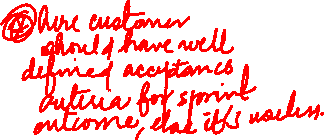 Aire customer
should have well
defined acceptance
criteria for sprint
outcome, else it is useless.